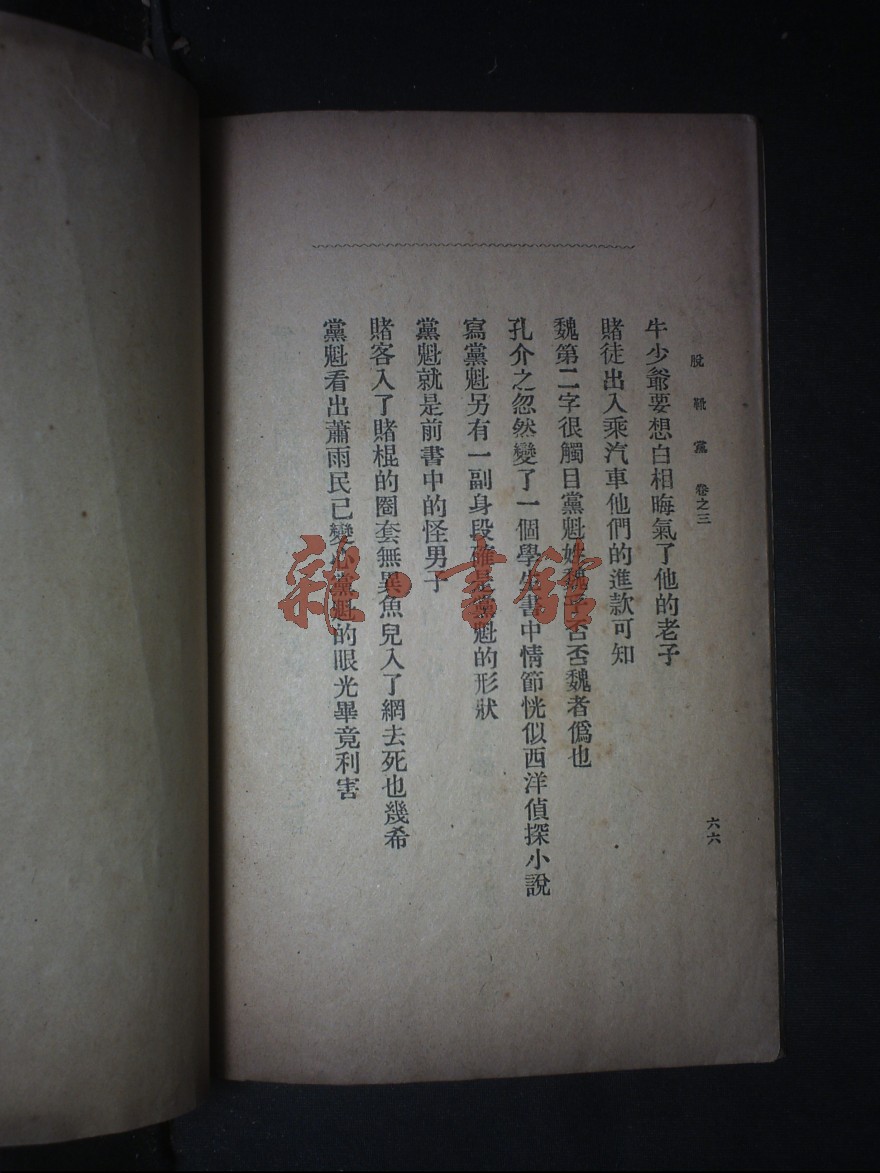 脫靴黨 卷之三
六六
牛少爺要想白相晦氣了他的老子
賭徒出入乘汽車他們的進款可知
魏第二字很觸目黨魁姓魏乎否否魏者僞也
孔介之忽然變了一個學生書中情節恍似西洋偵探小說
寫黨魁另有一副身段確是黨魁的形狀
黨魁就是前書中的怪男子
賭客入了賭棍的圈套無異魚兒入了網去死也幾希
黨魁看出蕭雨民已變心黨魁的眼光畢竟利害
雜·書館